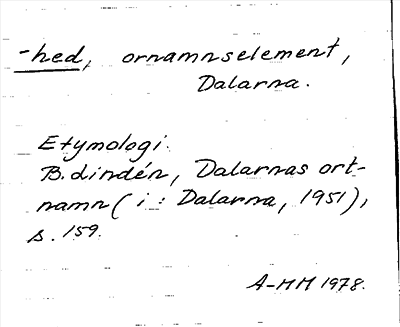 -hed, ornamnselement,
Dalarna.
Etymologi.
B. Lindén, Dalarnas ort-
namn (i: Dalarna, 1951),
s. 159.
A-MM 1978.